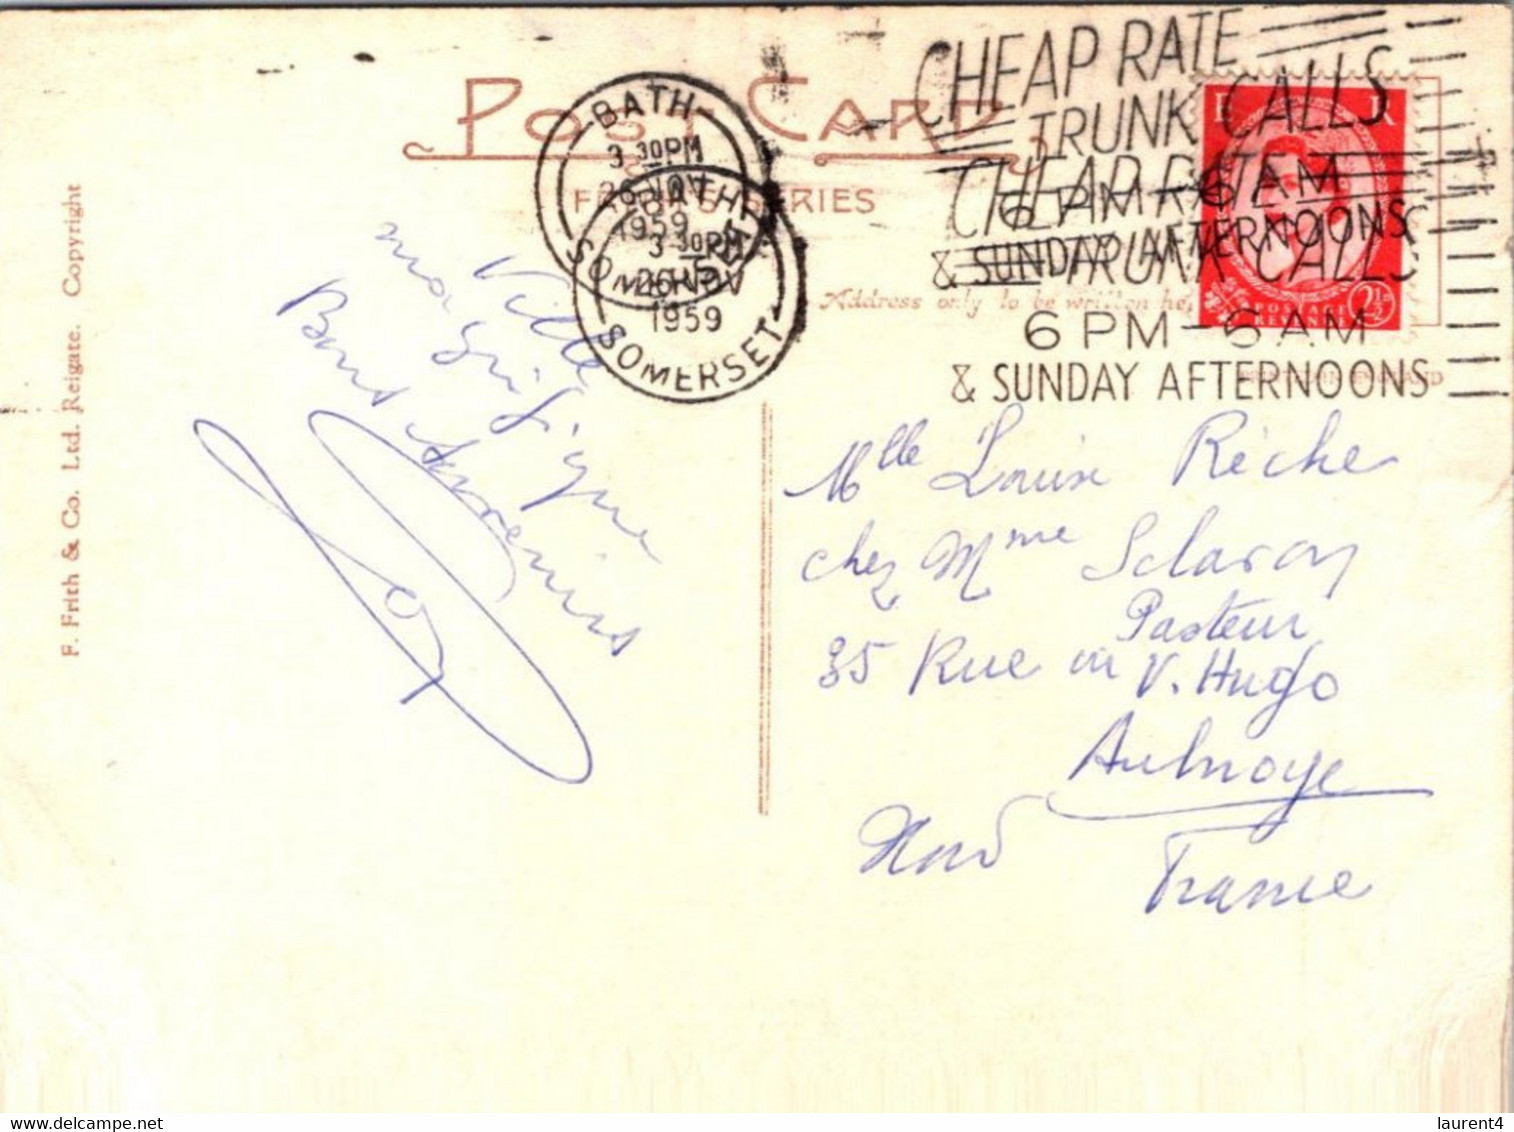 POST CARD
FRITH'S SERIES
F. Frith & Co. Ltd. Reigate. Copyright
BATH
3 30PM
26 NOV
1959
SOMERSET
BATH
3 30PM
26 NOV
1959
SOMERSET
CHEAP RATE
TRUNK CALLS
6 PM - 6 AM
& SUNDAY AFTERNOONS
CHEAP RATE
TRUNK CALLS
6 PM - 6 AM
& SUNDAY AFTERNOONS
E R
POSTAGE
REVENUE
2½
Address only to be written he
Ville
magnifique
Bons souvenirs
Mlle Louise Rèche
chez Mme
Pasteur
35 Rue ou V. Hugo
Aulnoye
Nord
France
laurent4